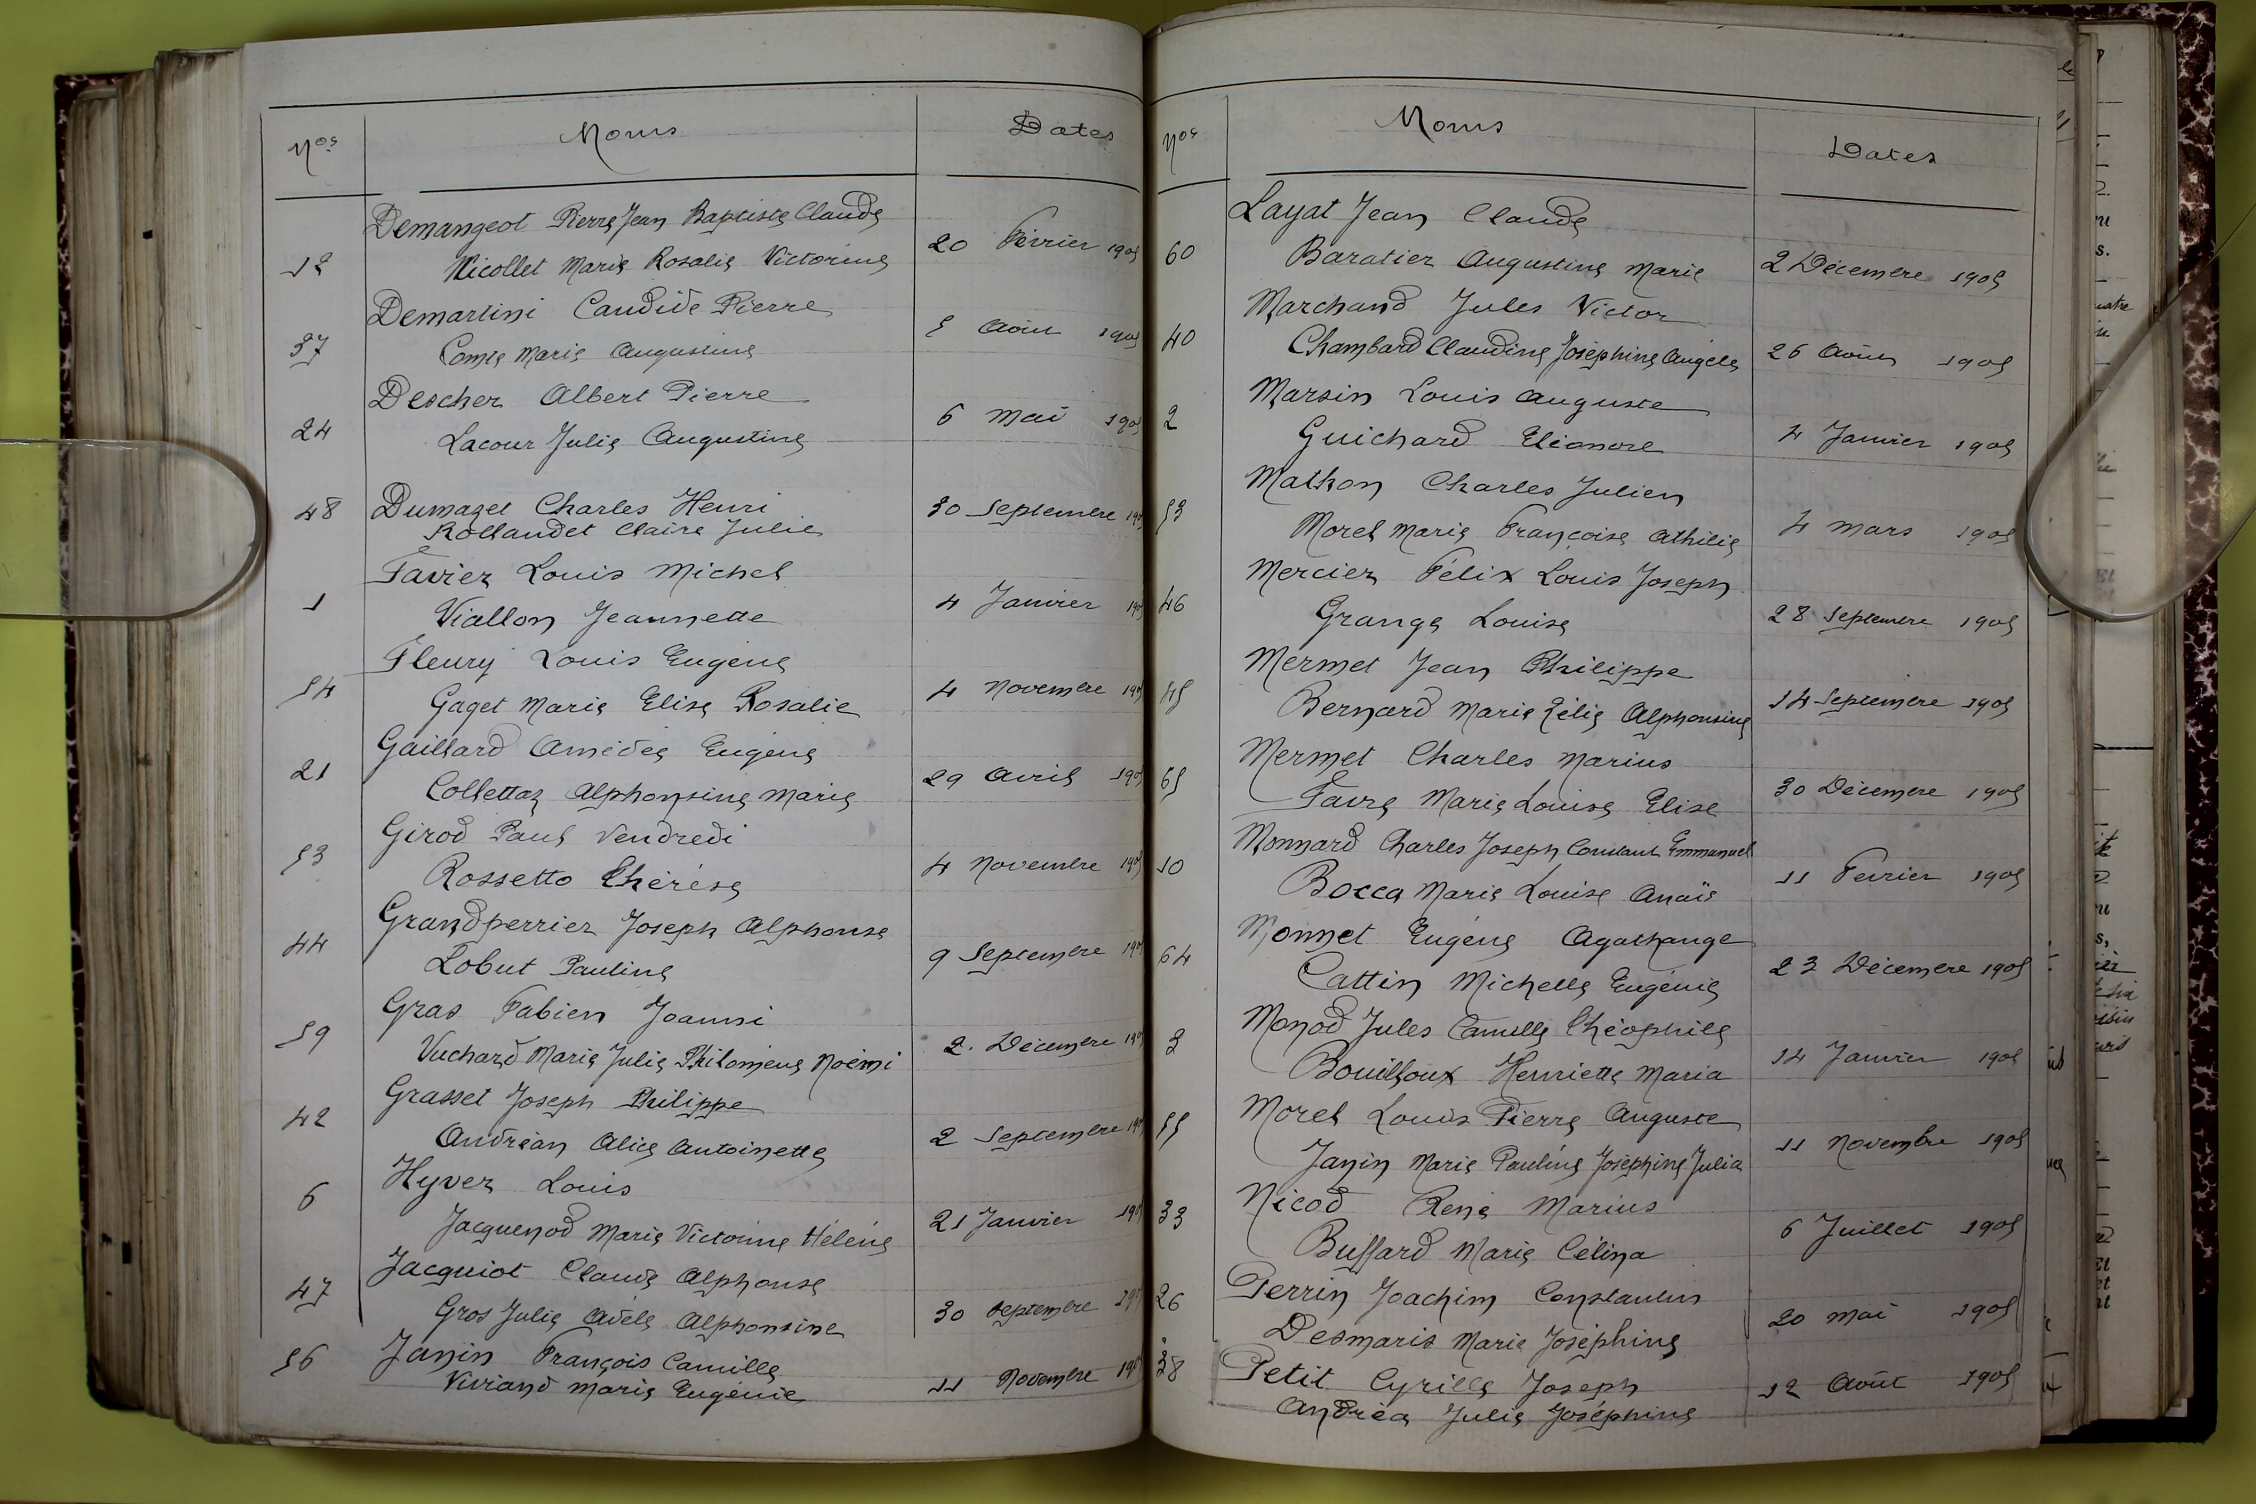 Nos Noms Dates
Demangeot Pierre Jean Baptiste Claude
12 Nicollet Marie Rosalie Victorine 20 Février 1905
Demartini Candide Pierre
37 Comte Marie Augustine 5 Août 1905
Descher Albert Pierre
24 Lacour Julie Augustine 6 Mai 1905
48 Dumazet Charles Henri 30 Septembre 190
Rollandet Claire Julie
Favier Louis Michel
1 Viallon Jeannette 4 Janvier 190
Fleury Louis Eugène
54 Gaget Marie Elise Rosalie 4 Novembre 190
Gaillard Amédée Eugène
21 Collettaz Alphonsine Marie 29 Avril 190
Girod Paul Vendredi
53 Rossetto Thérèse 4 Novembre 190
Grandperrier Joseph Alphonse
44 Lobut Pauline 9 Septembre 190
Gras Fabien Joanni
59 Vuchard Marie Julie Philomène Noémi 2 Décembre 190
Grasset Joseph Philippe
42 Andréan Alice Antoinette 2 Septembre 190
Hyver Louis
6 Jacquenod Marie Victorine Hélène 21 Janvier 190
Jacquiot Claude Alphonse
47 Gros Julie Adèle Alphonsine 30 Septembre 190
56 Janin François Camille
Viviand Marie Eugénie 11 Novembre 190
Nos Noms Dates
Layat Jean Claude
60 Baratier Augustine Marie 2 Décembre 1905
Marchand Jules Victor
40 Chambard Claudine Joséphine Angèle 26 Août 1905
Marsin Louis Auguste
2 Guichard Eléonore 4 Janvier 1905
Mathon Charles Julien
53 Morel Marie Françoise Athilie 4 Mars 1905
Mercier Félix Louis Joseph
46 Grange Louise 28 Septembre 1905
Mermet Jean Philippe
45 Bernard Marie Zélie Alphonsine 14 Septembre 1905
Mermet Charles Marius
65 Favre Marie Louise Elise 30 Décembre 1905
Monnard Charles Joseph Constant Emmanuel
10 Bocca Marie Louise Anaïs 11 Février 1905
Monnet Eugène Agathange
64 Cattin Michelle Eugénie 23 Décembre 1905
Monod Jules Camille Théophile
3 Bouilloux Henriette Maria 14 Janvier 1905
Morel Louis Pierre Auguste
55 Janin Marie Pauline Joséphine Julia 11 Novembre 1905
Nicod René Marius
33 Buffard Marie Célina 6 Juillet 1905
Perrin Joachim Constantin
26 Desmaris Marie Joséphine 20 Mai 1905
38 Petit Cyrille Joseph 12 Août 1905
Andréa Julie Joséphine